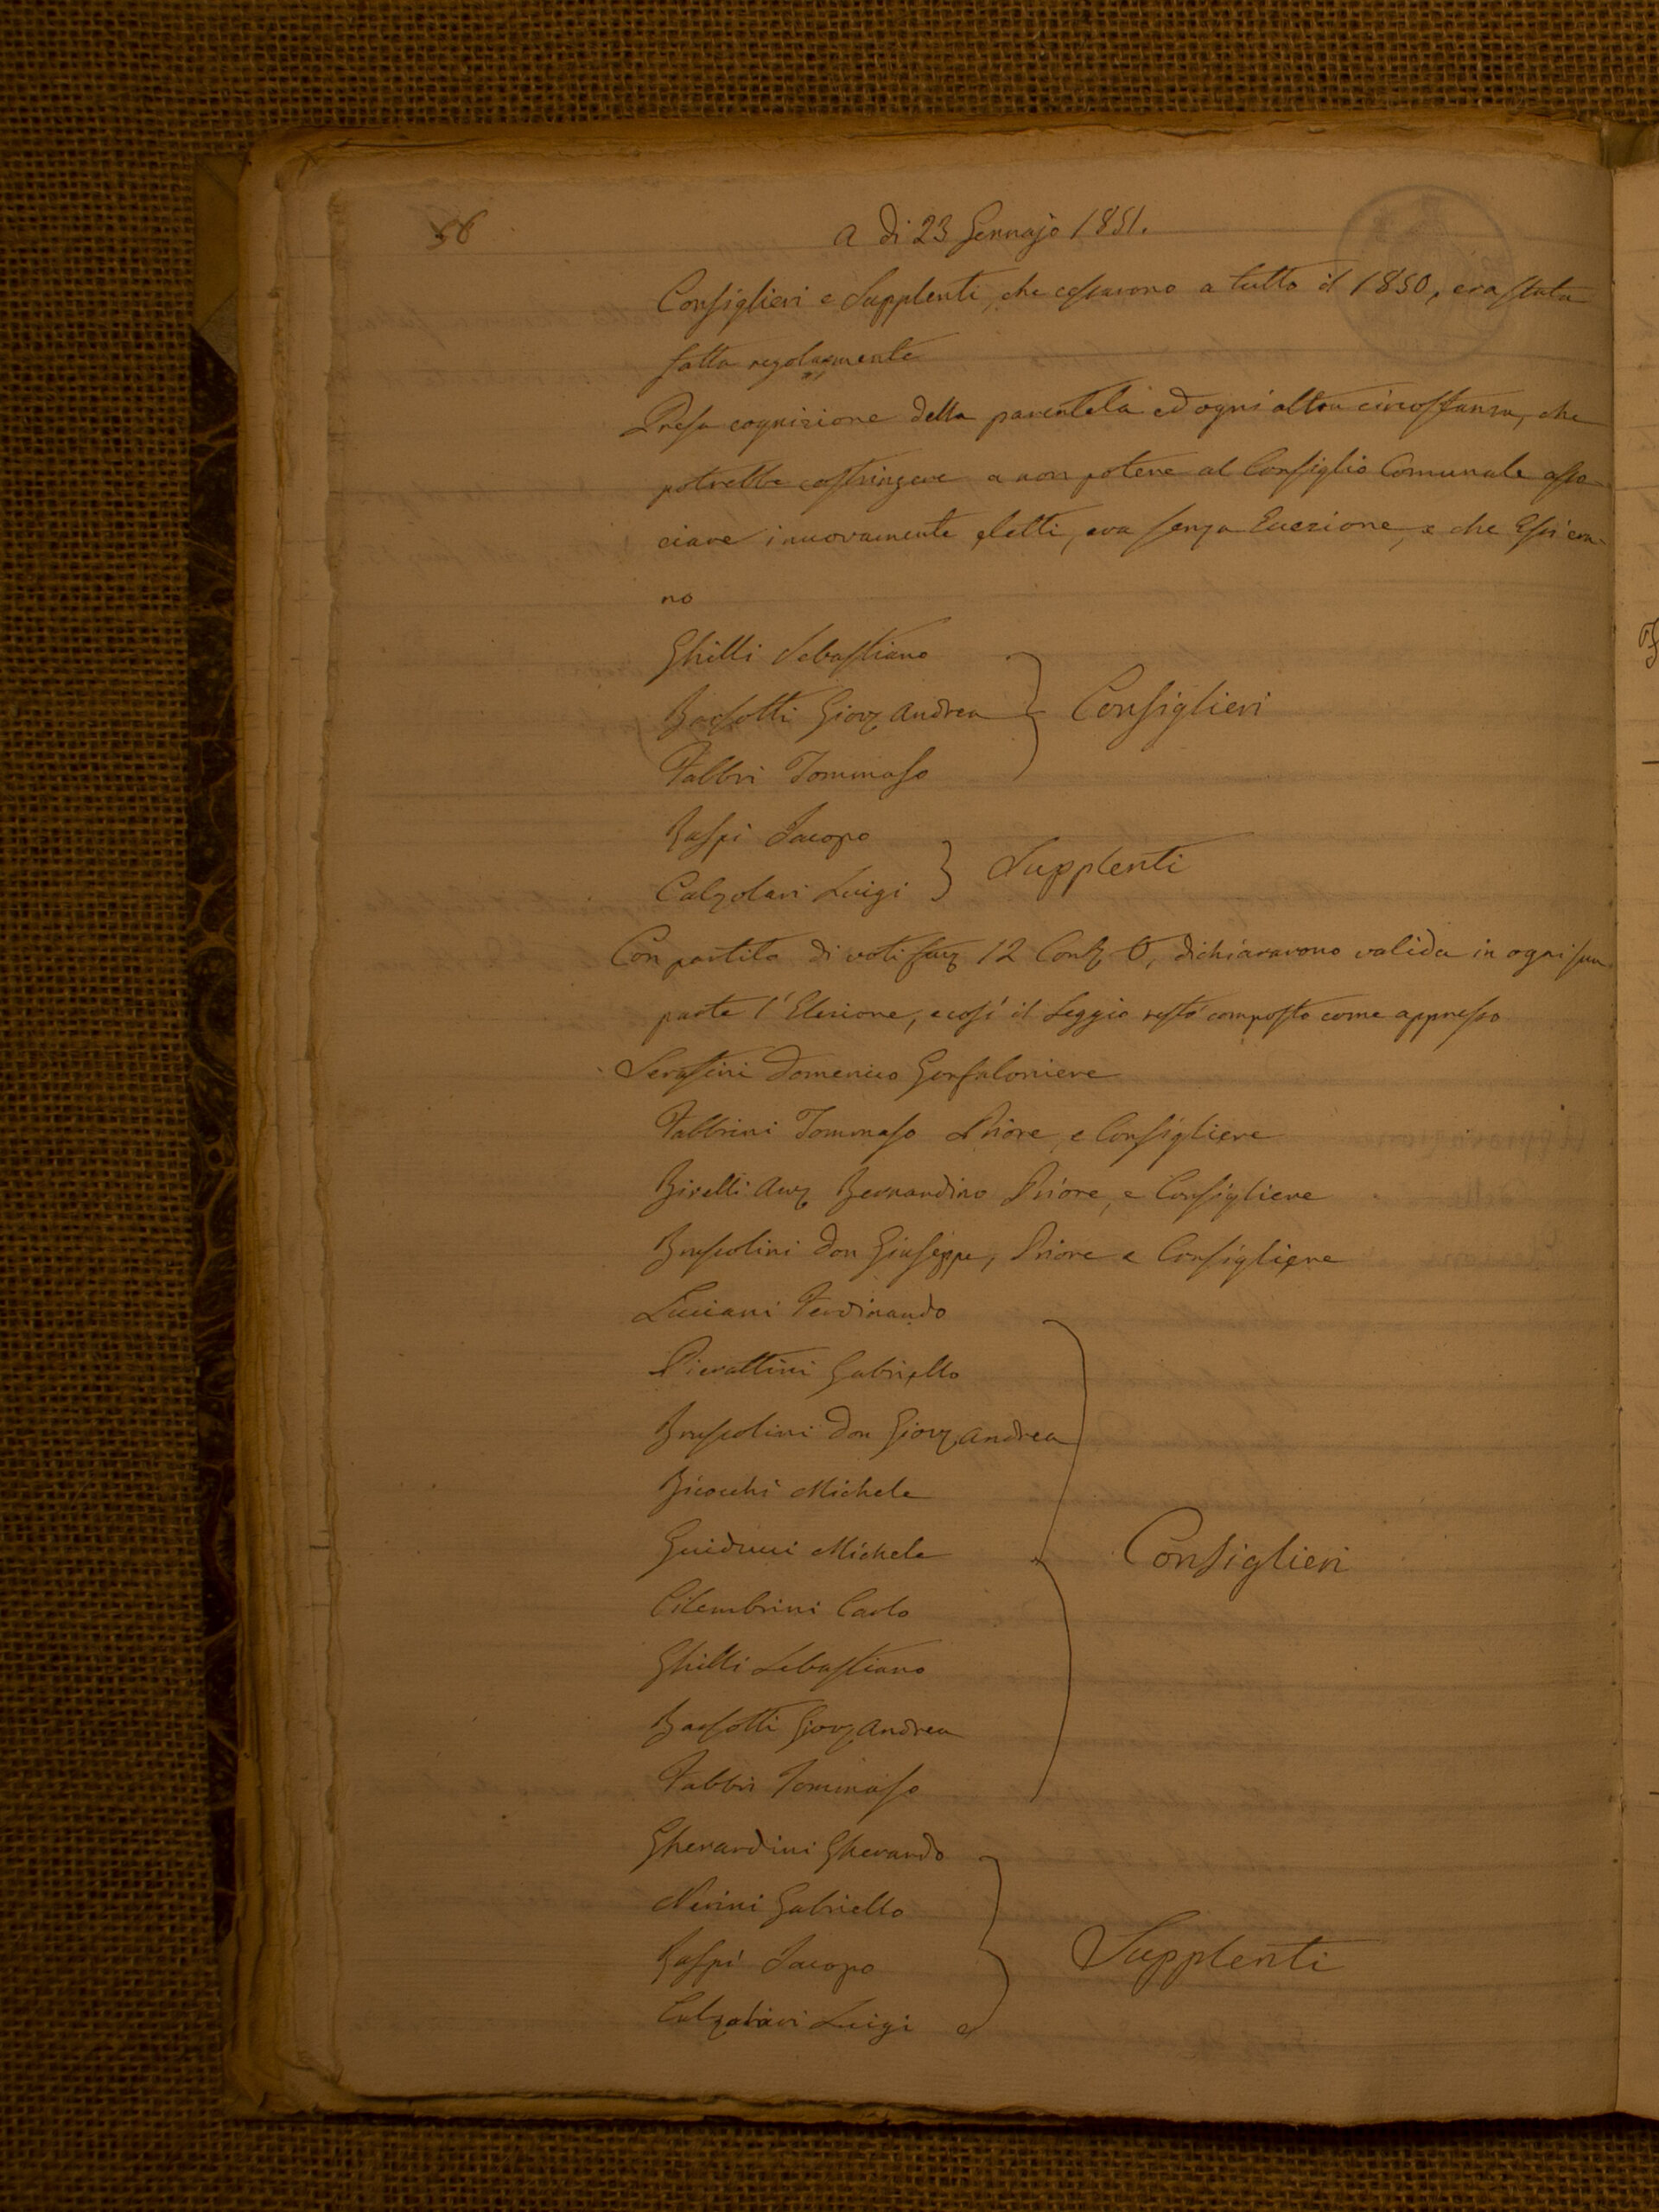 56
A di 23 Gennajo 1851.
Consiglieri e Supplenti, che cessarono a tutto il 1850, era stata
fatta regolarmente
Presa cognizione della parentela ed ogni altra circostanza, che
potrebbe costringere a non potere al Consiglio Comunale asso-
ciare i nuovamente eletti, era senza Eccezione, e che Essi era-
no
Ghilli Sebastiano
Barsotti Giov. Andrea
Consiglieri
Fabbri Tommaso
Raspi Jacopo
Supplenti
Calzolari Luigi
Con partito di voti fav. 12 Cont. 0, dichiararono valida in ogni sua
parte l'Elezione, e così il Seggio restò composto come appresso
Serafini Domenico Gonfaloniere
Fabbrini Tommaso Priore, e Consigliere
Birelli Bernardino Priore, e Consigliere
Bruscolini Don Giuseppe, Priore e Consigliere
Luciani Ferdinando
Pierattini Gabriello
Bruscolini Don Giov. Andrea
Bicocchi Michele
Guiducci Michele
Consiglieri
Cilembrini Carlo
Ghilli Sebastiano
Barsotti Giov. Andrea
Fabbri Tommaso
Gherardini Gherardo
Nerini Gabriello
Raspi Jacopo
Supplenti
Calzolari Luigi